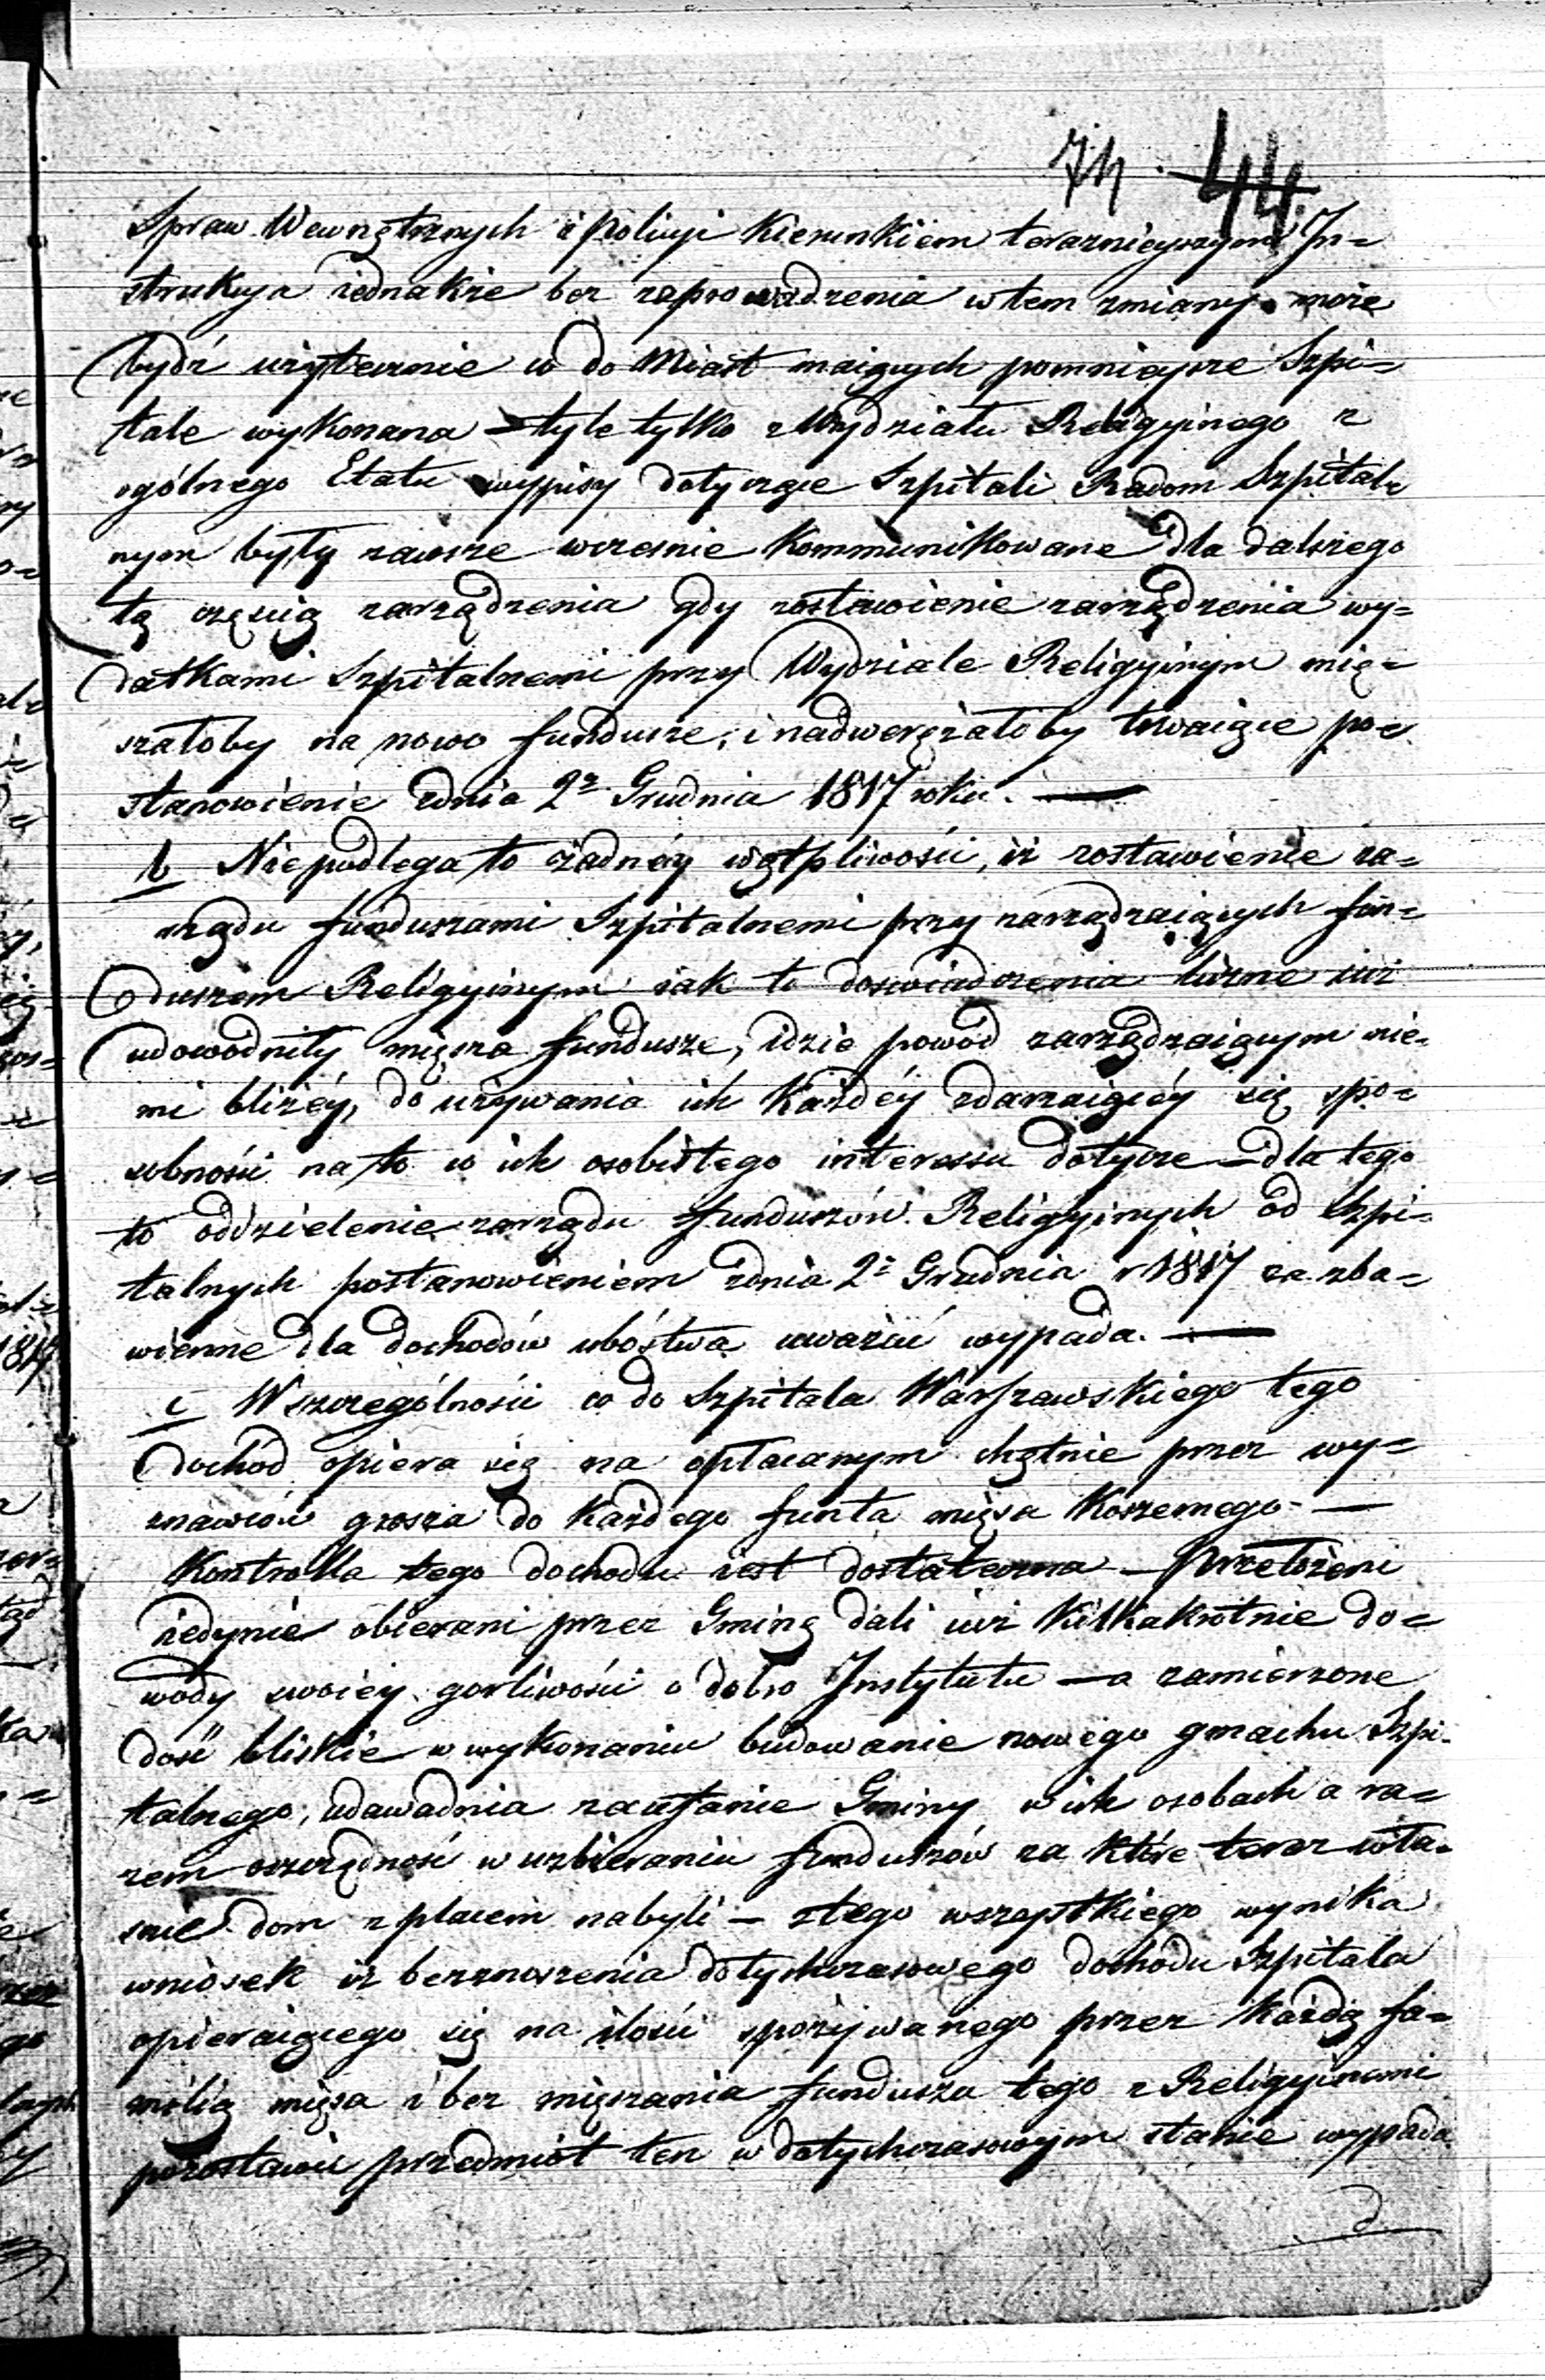 44.
Spraw Wewnętrznych i Policyi Kierunkiem teraznieyszym In=
strukcya iednakże bez zaprowadzenia w tem zmiany może
bydź użytecznie co do Miast maiących pomnieysze Szpi=
tale wykonana – tyle tylko z Wydziału Religyinego z
ogólnego Etatu wypisy dotyczące Szpitali Radom Szpital=
nym były zawsze wcześnie Kommunikowane dla dalszego
tą częścią zarządzenia gdy zostawienie zarządzenia wy=
datkami Szpitalnemi przy Wydziale Religyinym mię=
szałoby na nowo fundusze, i nadwerężałoby trwaiące po=
stanowienie zdnia 2º Grudnia 1817 roku. —
b Niepodlega to żadnéy wątpliwości, iż zostawienie za=
rządu funduszami Szpitalnemi przy zarządzaiących fun=
duszem Religyinym iak to doswiadczenia liczne iuż
udowodniły mięsza fundusze, idzie powód zarządzaiącym nie=
mi bliżéy, do używania ich Każdéy zdarzaiącéy się spo=
sobności na to co ich osobistego interessu dotycze – dla tego
to oddzielenie zarządu funduszów Religyinych od Szpi=
talnych postanowieniem zdnia 2º Grudnia r 1817 za zba=
wienne dla dochodów ubóstwa uważać wypada. —
c W szczególności co do Szpitala Warszawskiego tego
dochod opiera się na opłacanym chętnie przez wy=
znawców grosza do Każdego funta mięsa Koszernego —
Kontrolla tego dochodu iest dostateczna – Przełożeni
iedynie obierani przez Gminę dali iuż Kilkakrotnie do=
wody swoiéy gorliwości o dobro Instytutu – a zamierzone
dość bliskie w wykonaniu budowanie nowego gmachu Szpi=
talnego, udawadnia zaufanie Gminy w ich osobach a ra=
zem oszczędność w uzbieraniu funduszów za które teraz wła=
snie dom z placem nabyli – z tego wszystkiego wynika
wniosek iż bez znoszenia dotychczasowego dochodu Szpitala
opieraiącego się na ilości spożywanego przez Każdą fa=
milią mięsa i bez mięszania funduszu tego z Religyinemi
pozostawić przedmiot ten w dotychczasowym stanie wypada
d